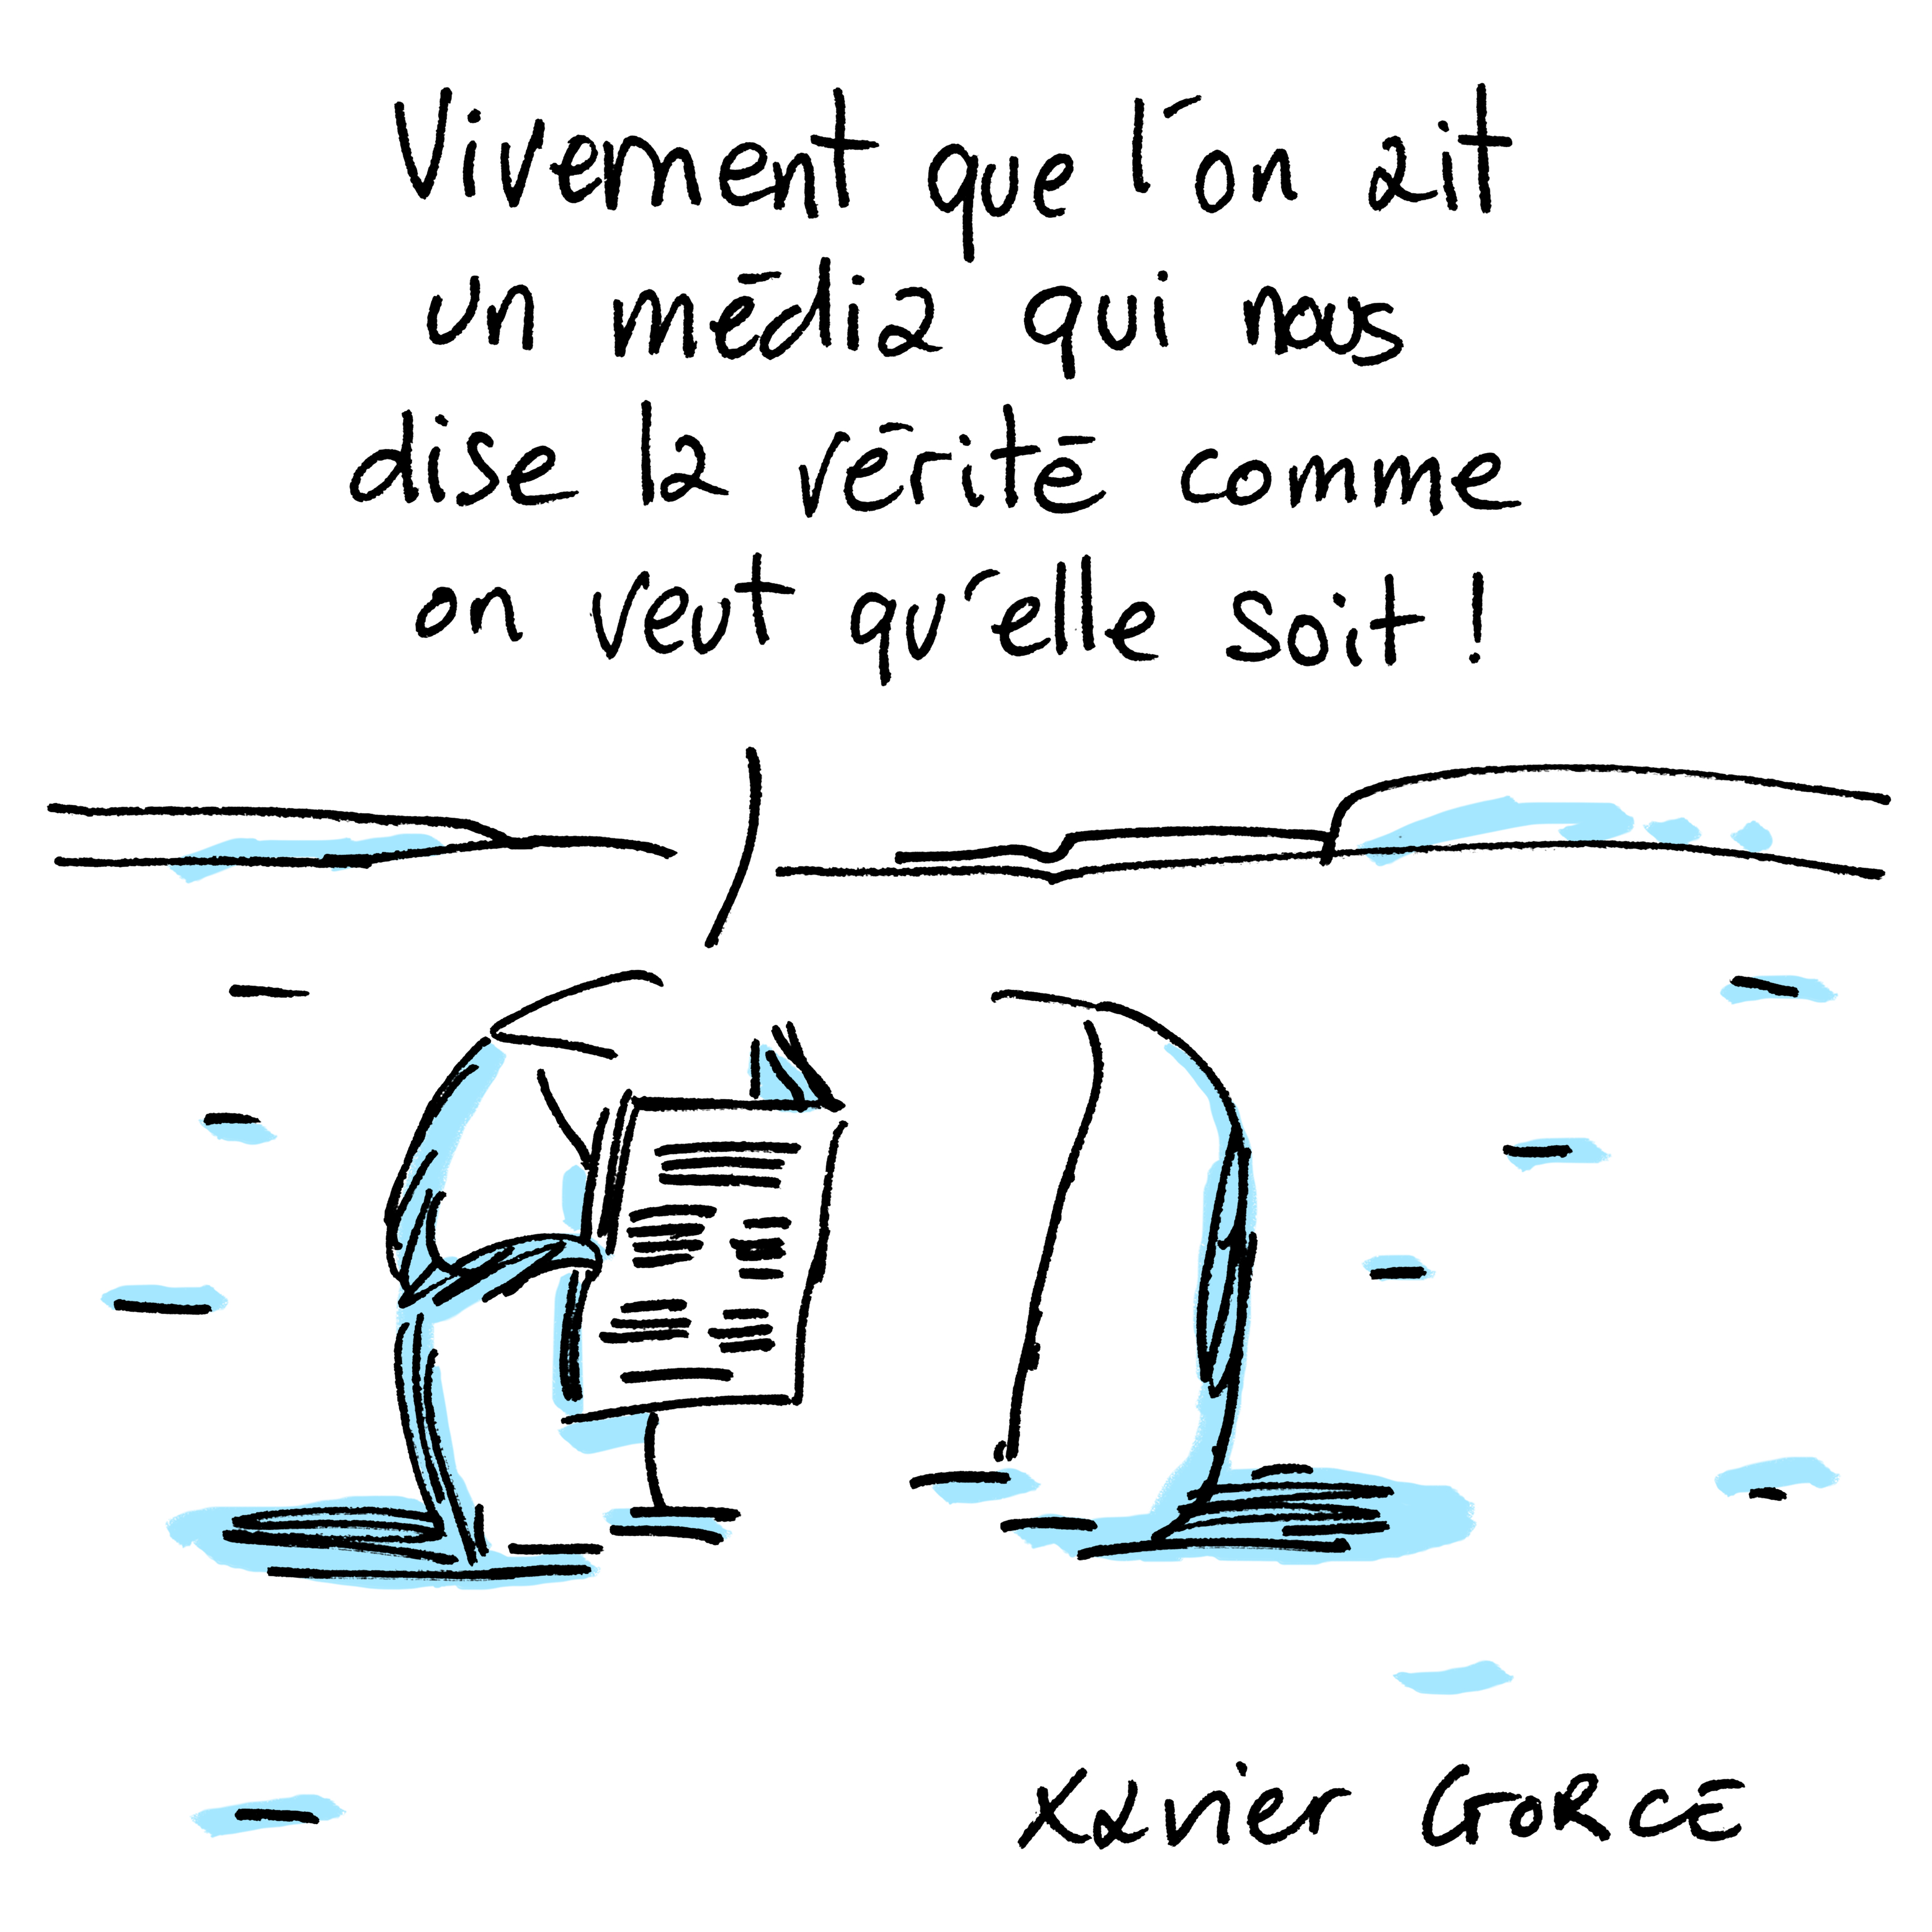 Vivement que l'on ait
un média qui nous
dise la vérité comme
on veut qu'elle soit !
Xavier GORCE